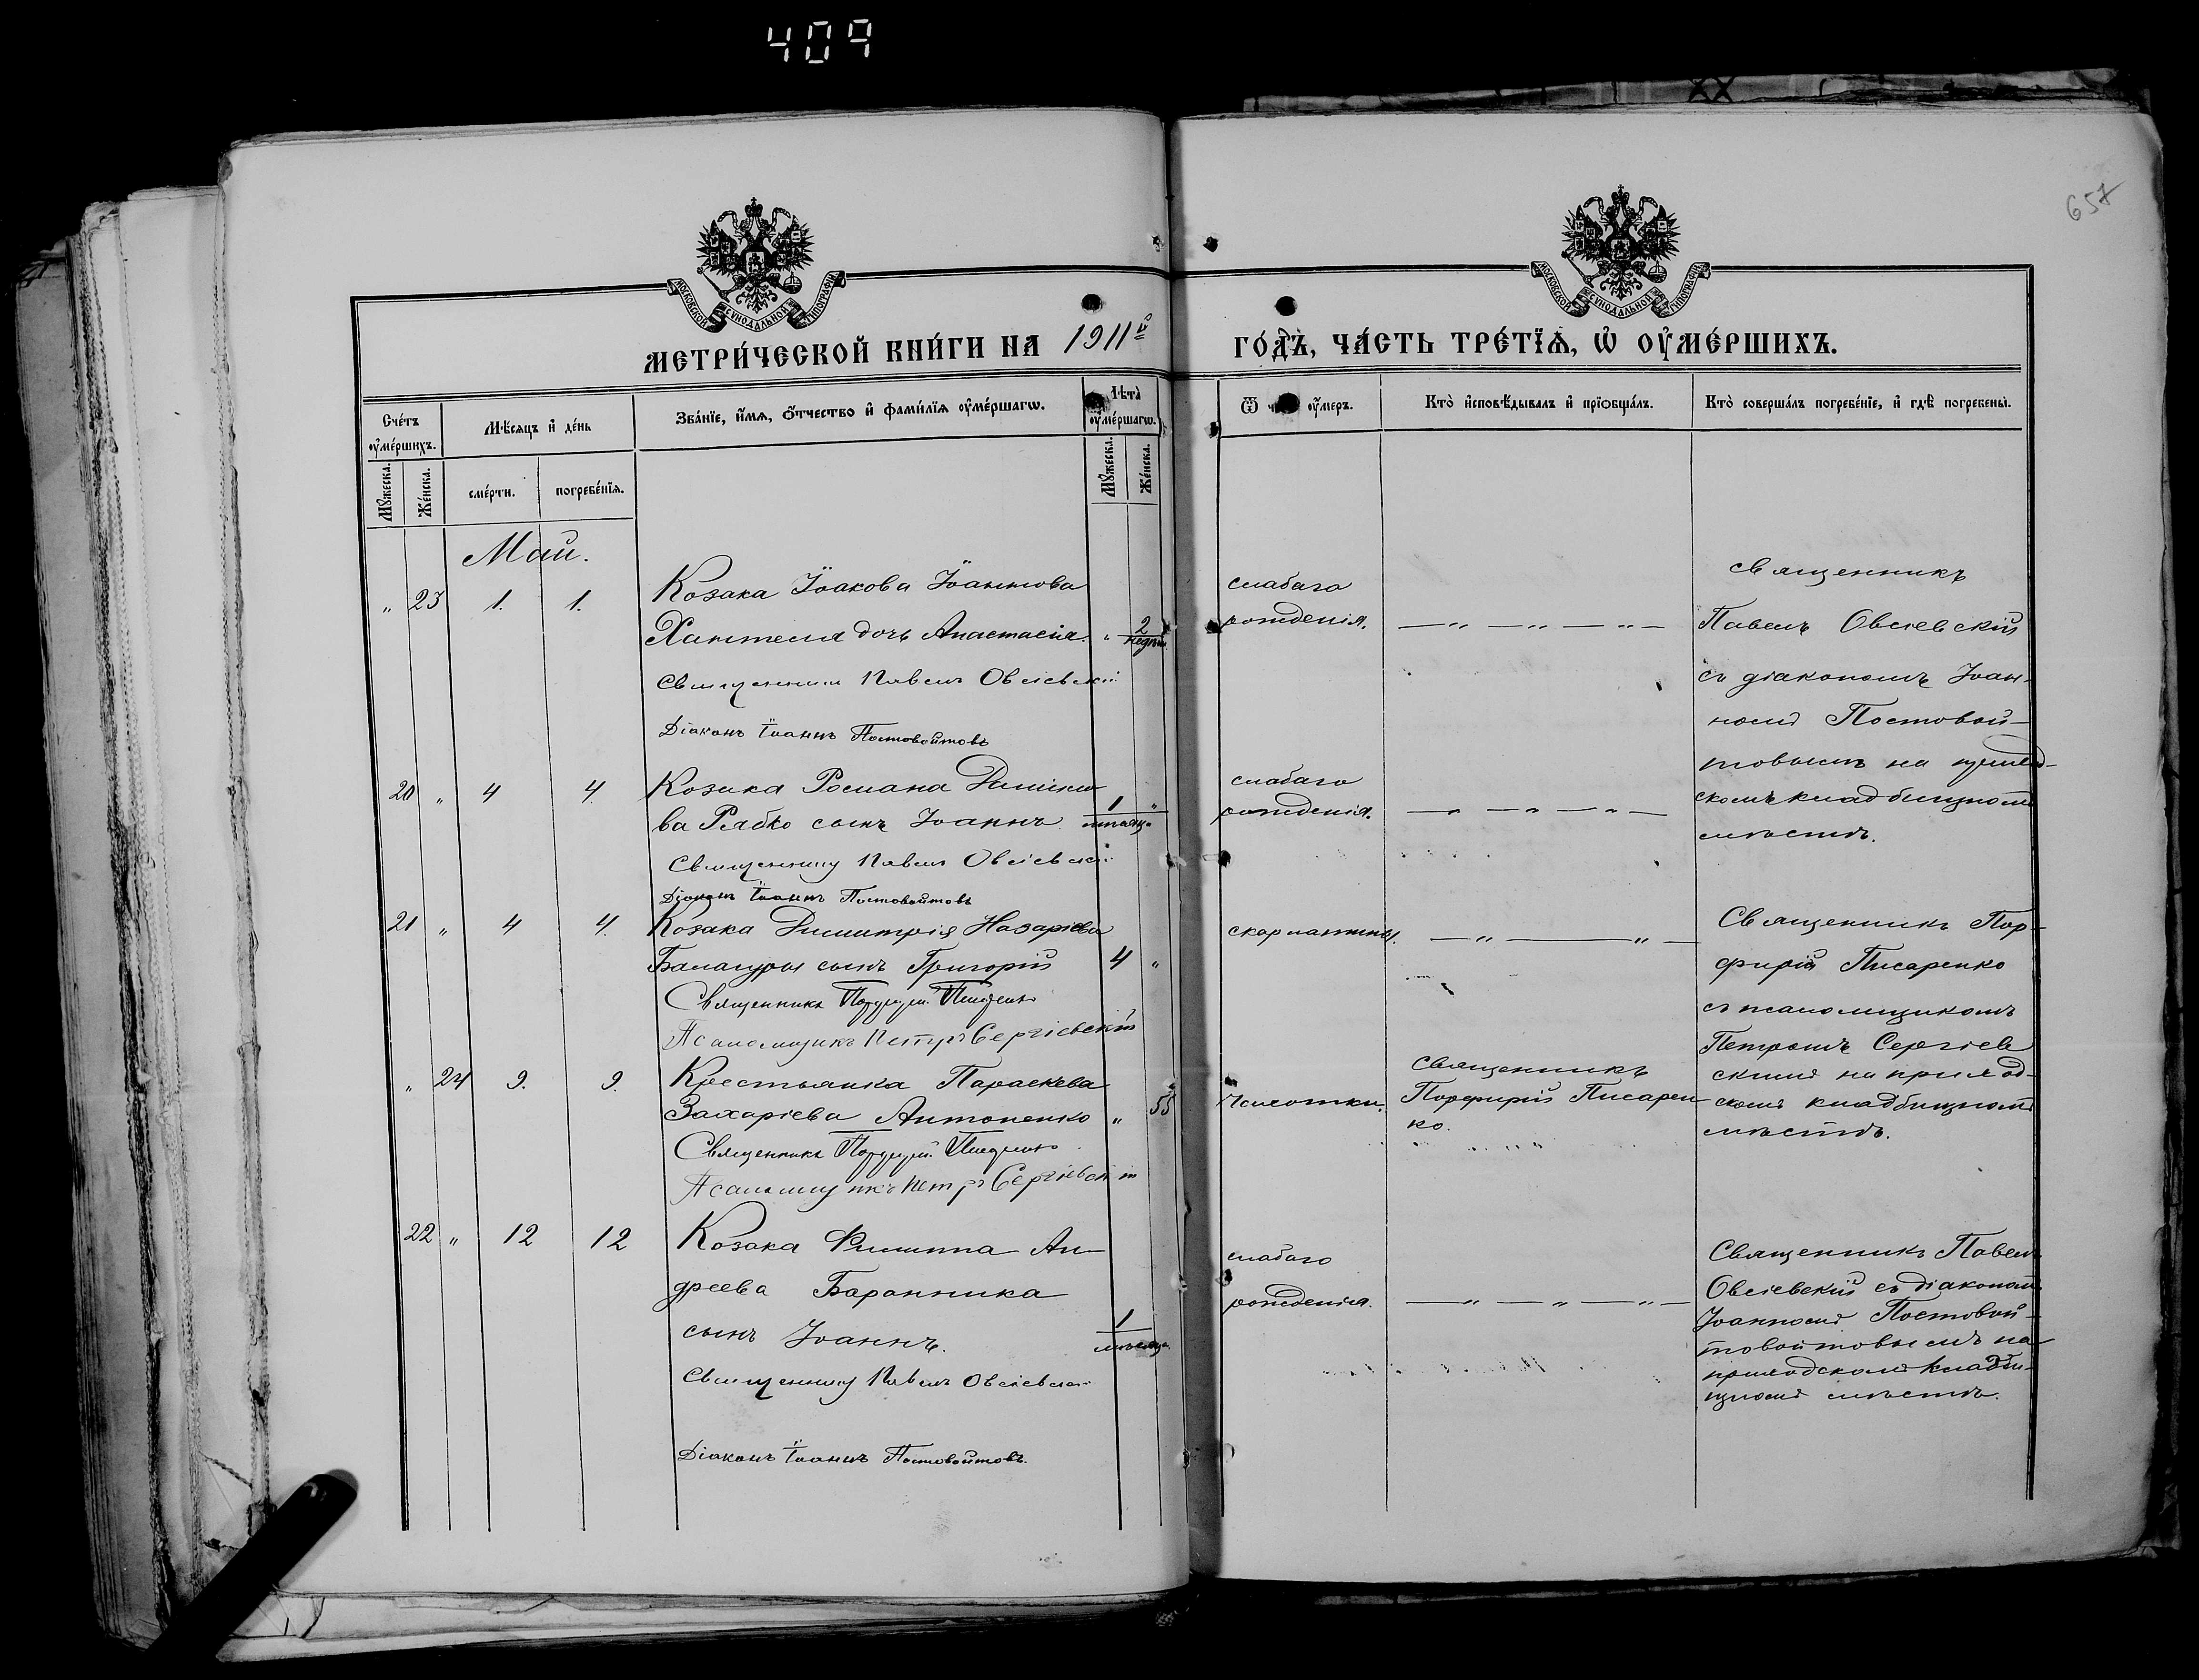 409
657
МОСКОВСКОЙ СѴНОДАЛЬНОЙ ТИПОГРАФІИ
МОСКОВСКОЙ СѴНОДАЛЬНОЙ ТИПОГРАФІИ
МЕТРИ́ЧЕСКОЙ КНИ́ГИ НА 1911й ГО́ДЪ, ЧА́СТЬ ТРЕ́ТЇѦ, Ѡ҆ ОУ҆МЕ́РШИХЪ.
Сче́тъ оу҆ме́ршихъ.
Мѣ́сяцъ и҆ де́нь
Зва́нїе, и҆́мѧ, ѻ҆́тчество и҆ фами́лїѧ оу҆ме́ршагѡ.
Лѣ́та оу҆ме́ршагѡ.
Ѿ чегѡ̀ оу҆́меръ.
Кто̀ и҆сповѣ́дывалъ и҆ прїѡбща́лъ.
Кто̀ соверша́лъ погребе́нїе, и҆ гдѣ̀ погребены̀.
Мꙋ́жеска.
Же́нска.
сме́рти.
погребе́нїѧ.
Мꙋ́жеска.
Же́нска.
Май.
" 23 1. 1. Козака Іоакова Іоаннова
Хантеля дочь Анастасія. " 2 недѣли
Священникъ Павелъ Овсіевскій
Діаконъ Іоаннъ Постовойтовъ
слабаго
рожденія. — " — " — " —
священникъ
Павелъ Овсіевскій
съ діакономъ Іоан-
номъ Постовой-
товымъ на приход-
скомъ кладбищномъ
мѣстѣ.
20 " 4 4. Козака Романа
ва Рябко сынъ Іоаннъ. 1 мѣсяцъ "
Священникъ Павелъ Овсіевскій
Діаконъ Іоаннъ Постовойтовъ
слабаго
рожденія. — " — " — " —
21 " 4 4. Козака Димитрія Назаріева
Балагуры сынъ Григорій 4 "
Священникъ Порфирій Писаренко
Псаломщикъ Петръ Сергіевскій
скарлатины. — " — " —
Священникъ Пор-
фирій Писаренко
съ псаломщикомъ
Петромъ Сергіев
скимъ на приход-
скомъ кладбищномъ
мѣстѣ.
" 24 9. 9. Крестьянка Параскева
Захаріева Антоненко " 55
Священникъ Порфирій Писаренко
Псаломщикъ Петръ Сергіевскій
Чахотки.
Священникъ
Порфирій Писарен
ко.
22 " 12 12 Козака Филиппа Ан-
дреева Баранника
сынъ Іоаннъ. 1 мѣсяцъ
Священникъ Павелъ Овсіевскій
Діаконъ Іоаннъ Постовойтовъ.
слабаго
рожденія. — " — " — " —
Священникъ Павелъ
Овсіевскій съ діаконом
Іоанномъ Постовой-
товойтовымъ на
приходскомъ кладби-
щномъ мѣстѣ.